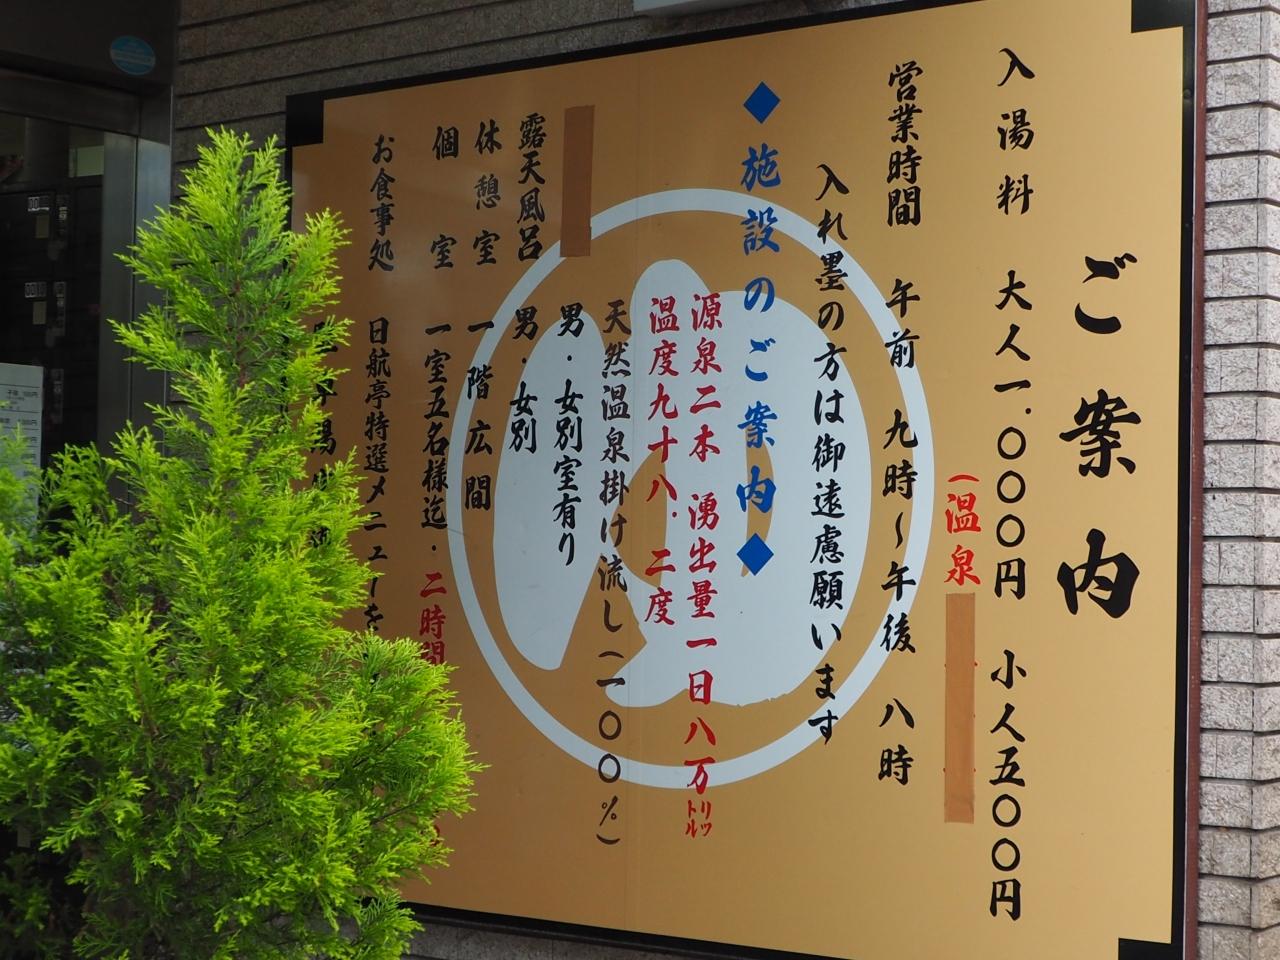 ご案内
入湯料 大人一.〇〇〇円 小人五〇〇円
(温泉
営業時間 午前 九時~午後 八時
入れ墨の方は御遠慮願います
◆施設のご案内◆
源泉二本 湧出量一日八万リットル
温度九十八.二度
天然温泉掛け流し(一〇〇%)
男・女別室有り
露天風呂 男・女別
休憩室 一階広間
個室 一室五名様迄・二時間
お食事処 日航亭特選メニューを